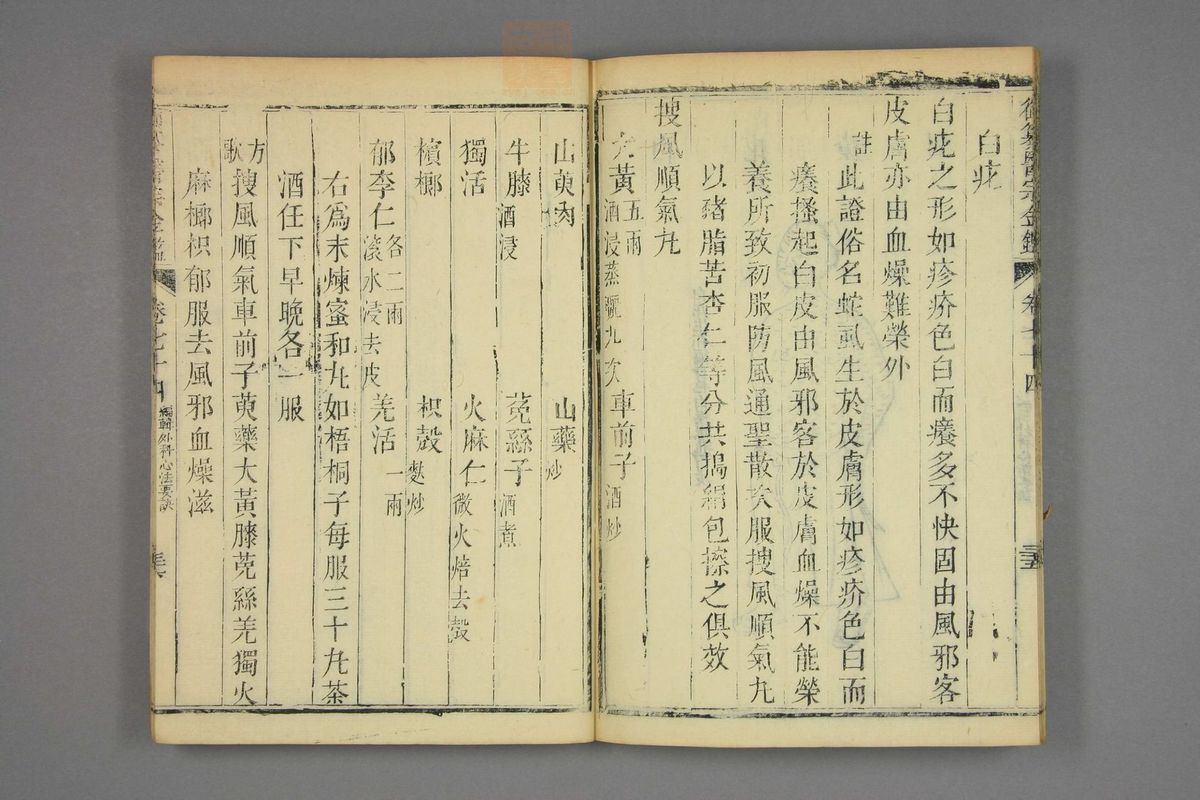 御纂醫宗金鑑 卷七十四
白疕
白疕之形如疹疥色白而癢多不快固由風邪客
皮膚亦由血燥難榮外
註 此證俗名蛇虱生於皮膚形如疹疥色白而
癢搔起白皮由風邪客於皮膚血燥不能榮
養所致初服防風通聖散次服搜風順氣丸
以豬脂苦杏仁等分共搗絹包擦之俱效
搜風順氣丸
大黃五兩酒浸蒸曬九次 車前子酒炒
山萸肉 山藥炒
牛膝酒浸 菟絲子酒煮
獨活 火麻仁微火焙去殼
檳榔 枳殼麩炒
郁李仁各二兩滾水浸去皮 羌活一兩
右爲末煉蜜和丸如梧桐子每服三十丸茶
酒任下早晚各一服
方歌 搜風順氣車前子萸藥大黃膝菟絲羌獨火
麻榔枳郁服去風邪血燥滋
卷七十四 編輯外科心法要訣